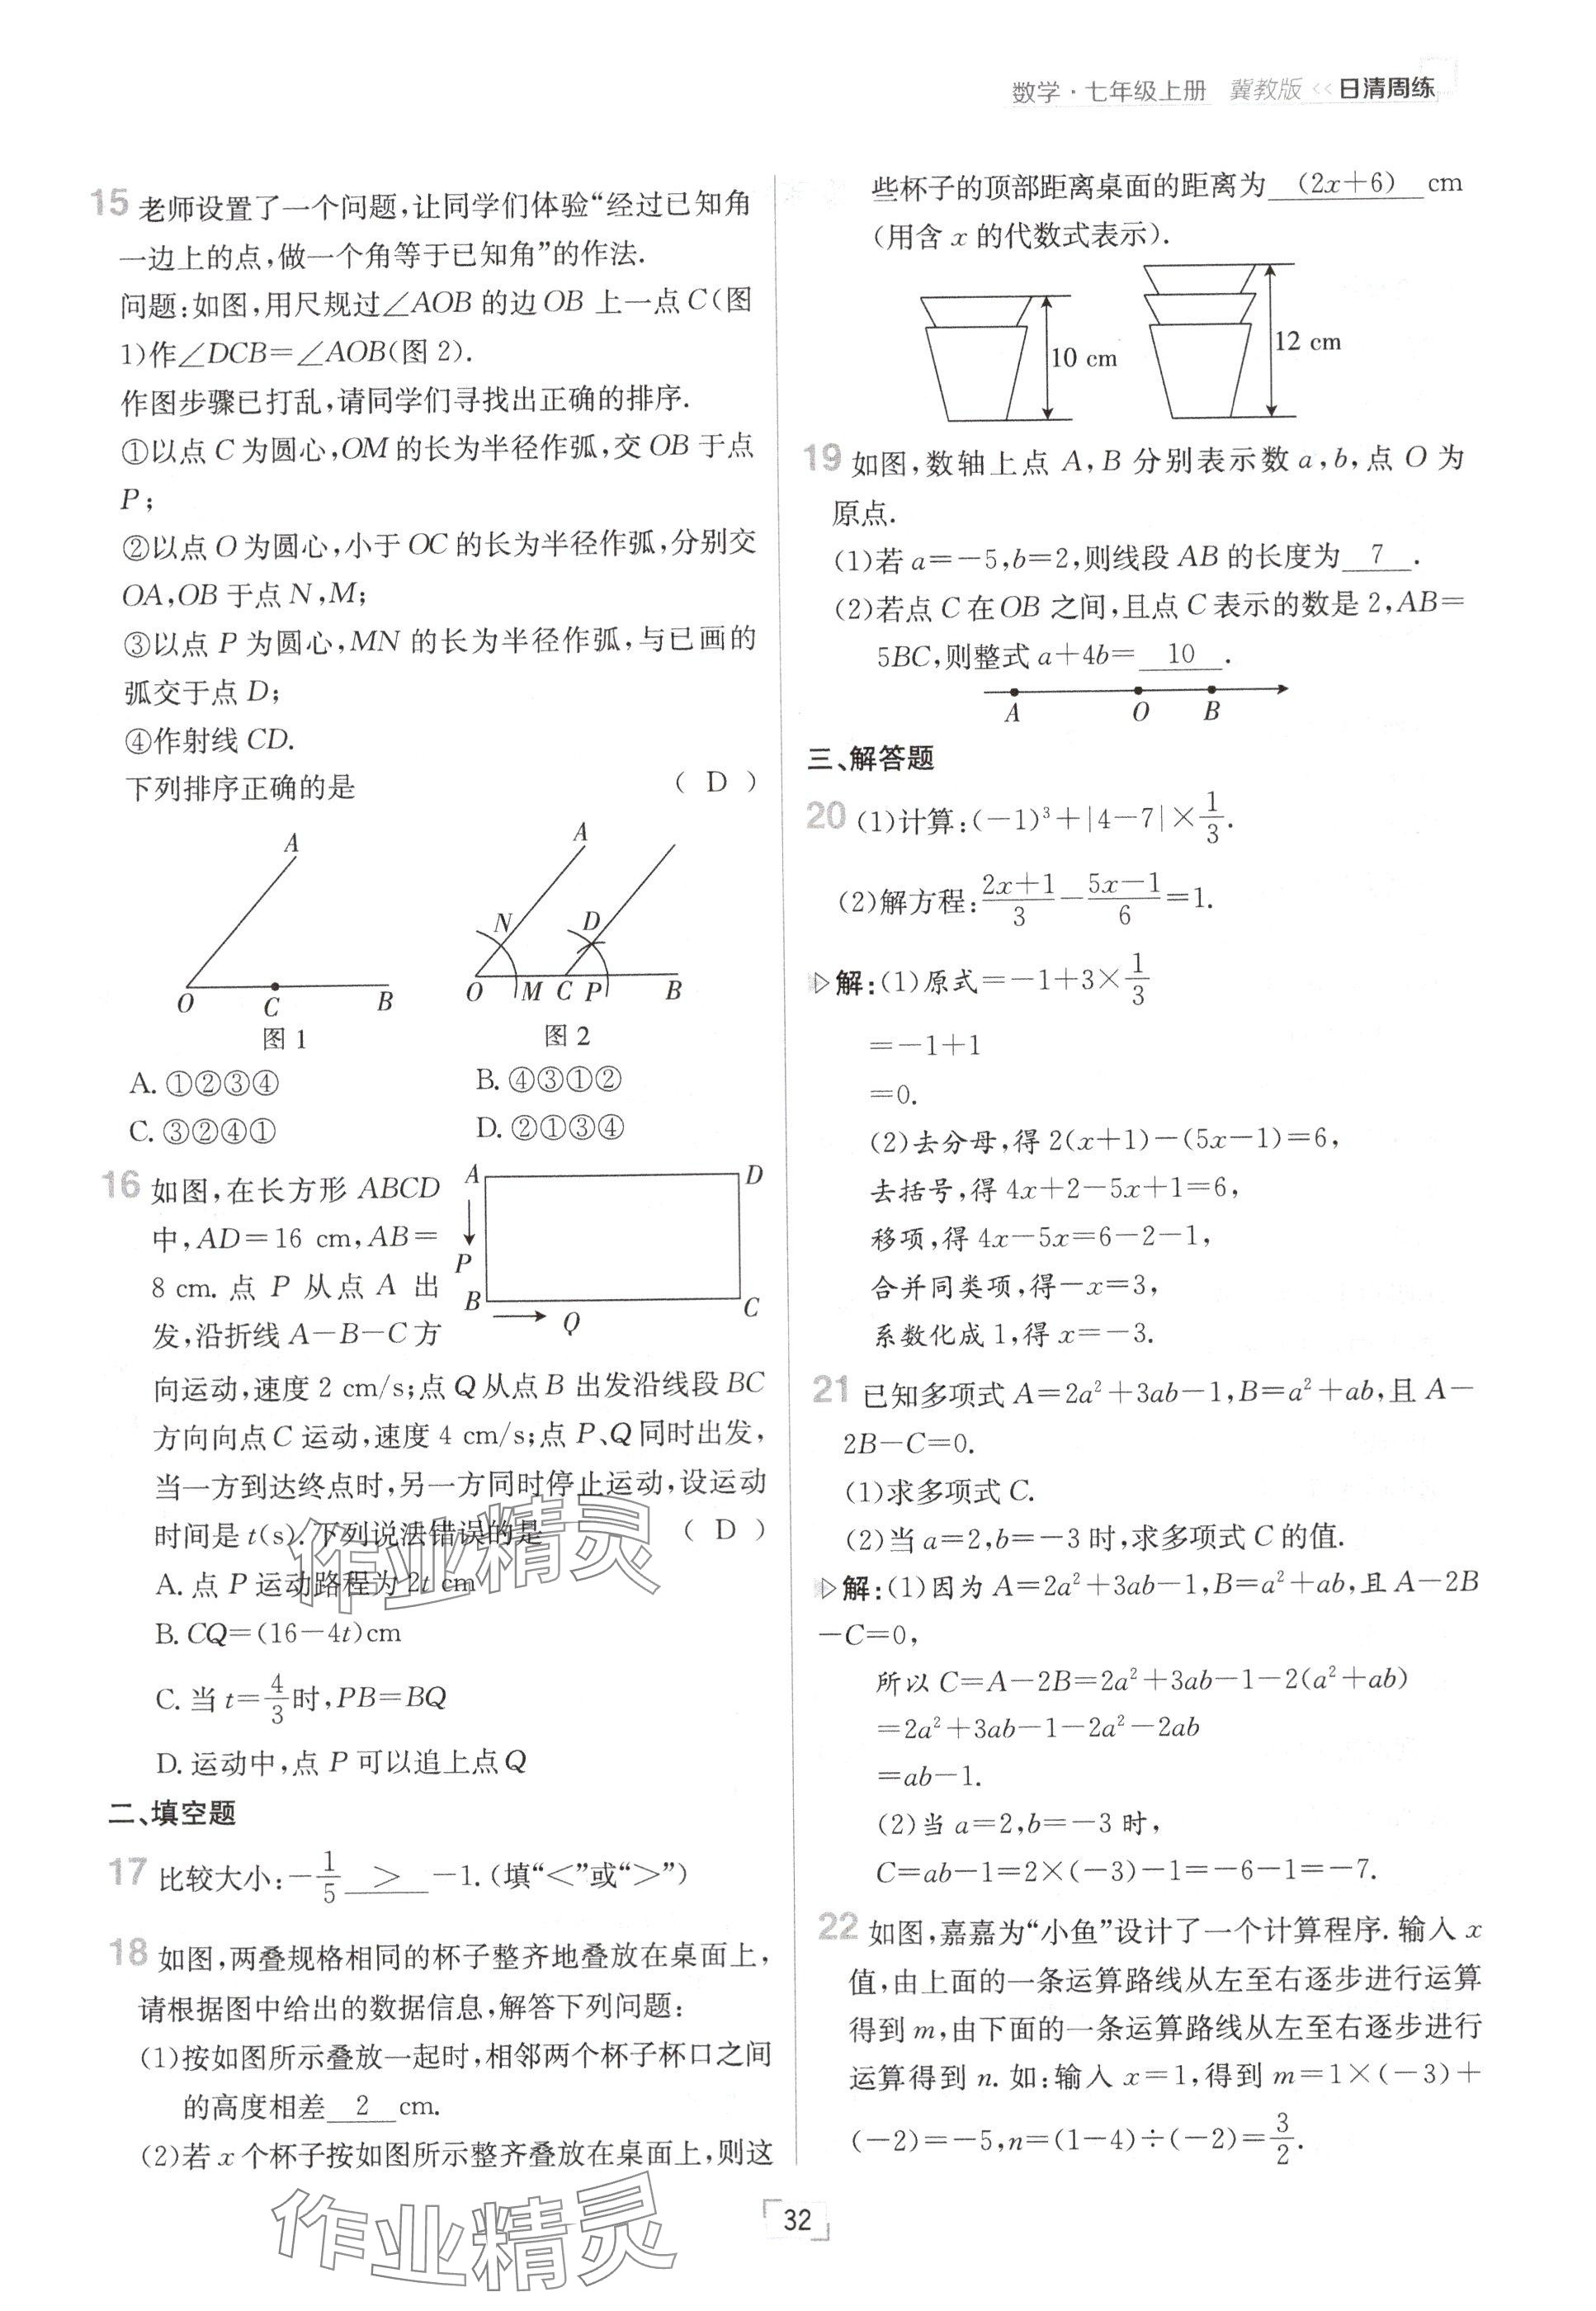 数学·七年级上册 冀教版 << 日清周练
15 老师设置了一个问题,让同学们体验“经过已知角
一边上的点,做一个角等于已知角”的作法.
问题:如图,用尺规过∠AOB 的边 OB 上一点 C(图
1)作∠DCB=∠AOB(图 2).
作图步骤已打乱,请同学们寻找出正确的排序.
①以点 C 为圆心,OM 的长为半径作弧,交 OB 于点
P;
②以点 O 为圆心,小于 OC 的长为半径作弧,分别交
OA,OB 于点 N,M;
③以点 P 为圆心,MN 的长为半径作弧,与已画的
弧交于点 D;
④作射线 CD.
下列排序正确的是 ( D )
A
O C B
图 1
A
N D
O M C P B
图 2
A. ①②③④ B. ④③①②
C. ③②④① D. ②①③④
16 如图,在长方形 ABCD
中,AD=16 cm,AB=
8 cm. 点 P 从点 A 出
发,沿折线 A-B-C 方
A D
P
B C
Q
向运动,速度 2 cm/s;点 Q 从点 B 出发沿线段 BC
方向向点 C 运动,速度 4 cm/s;点 P、Q 同时出发,
当一方到达终点时,另一方同时停止运动,设运动
时间是 t(s). 下列说法错误的是 ( D )
A. 点 P 运动路程为 2t cm
B. CQ=(16-4t)cm
C. 当 t=4/3 时,PB=BQ
D. 运动中,点 P 可以追上点 Q
二、填空题
17 比较大小:-1/5 > -1.(填“<”或“>”)
18 如图,两叠规格相同的杯子整齐地叠放在桌面上,
请根据图中给出的数据信息,解答下列问题:
(1)按如图所示叠放一起时,相邻两个杯子杯口之间
的高度相差 2 cm.
(2)若 x 个杯子按如图所示整齐叠放在桌面上,则这
些杯子的顶部距离桌面的距离为 (2x+6) cm
(用含 x 的代数式表示).
10 cm
12 cm
19 如图,数轴上点 A,B 分别表示数 a,b,点 O 为
原点.
(1)若 a=-5,b=2,则线段 AB 的长度为 7 .
(2)若点 C 在 OB 之间,且点 C 表示的数是 2,AB=
5BC,则整式 a+4b= 10 .
A O B
三、解答题
20 (1)计算:(-1)³+|4-7|×1/3.
(2)解方程:(2x+1)/3-(5x-1)/6=1.
解:(1)原式=-1+3×1/3
=-1+1
=0.
(2)去分母,得 2(x+1)-(5x-1)=6,
去括号,得 4x+2-5x+1=6,
移项,得 4x-5x=6-2-1,
合并同类项,得-x=3,
系数化成 1,得 x=-3.
21 已知多项式 A=2a²+3ab-1,B=a²+ab,且 A-
2B-C=0.
(1)求多项式 C.
(2)当 a=2,b=-3 时,求多项式 C 的值.
解:(1)因为 A=2a²+3ab-1,B=a²+ab,且 A-2B
-C=0,
所以 C=A-2B=2a²+3ab-1-2(a²+ab)
=2a²+3ab-1-2a²-2ab
=ab-1.
(2)当 a=2,b=-3 时,
C=ab-1=2×(-3)-1=-6-1=-7.
22 如图,嘉嘉为“小鱼”设计了一个计算程序. 输入 x
值,由上面的一条运算路线从左至右逐步进行运算
得到 m,由下面的一条运算路线从左至右逐步进行
运算得到 n. 如:输入 x=1,得到 m=1×(-3)+
(-2)=-5,n=(1-4)÷(-2)=3/2.
作业精灵
作业精灵
32